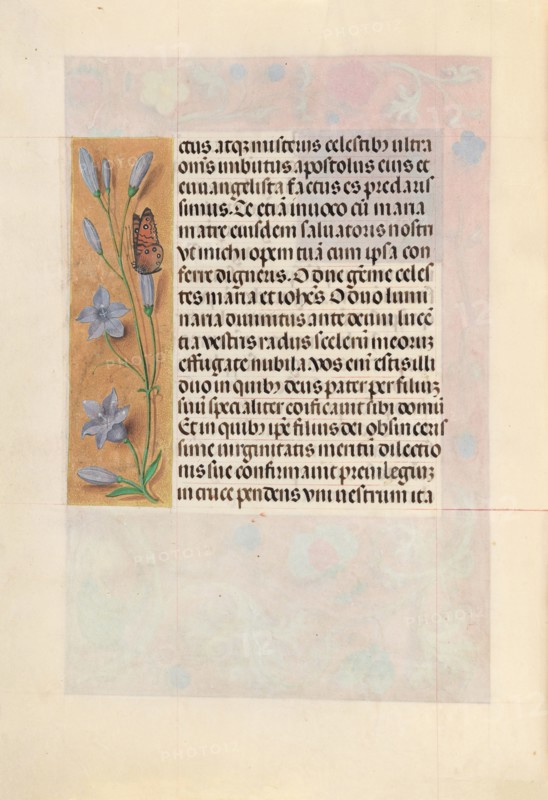 ctus atqꝫ misteriis celestibꝫ ultra
om̄s imbutus apostolus eius et
euuangelista factus es preclaris
simus. Te etiā inuoco cū maria
matre eiusdem saluatoris nostri
vt michi opem tuā cum ipsa con
ferre digneris. O due gēme celes
tes maria et ioh̄es. O duo lumi
naria diuinitus ante deum lucē
tia vestris radiis scelerū meorūꝫ
effugate nubila. Vos em̄ estis illi
duo in quibꝫ deus pater per filiuꝫ
suū specialiter edificauit sibi domū
Et in quibꝫ ip̄e filius dei ob sinceris
sime uirginitatis meritū dilectio
nis sue confirmauit preuilegiuꝫ
in cruce pendens vni uestrum ita